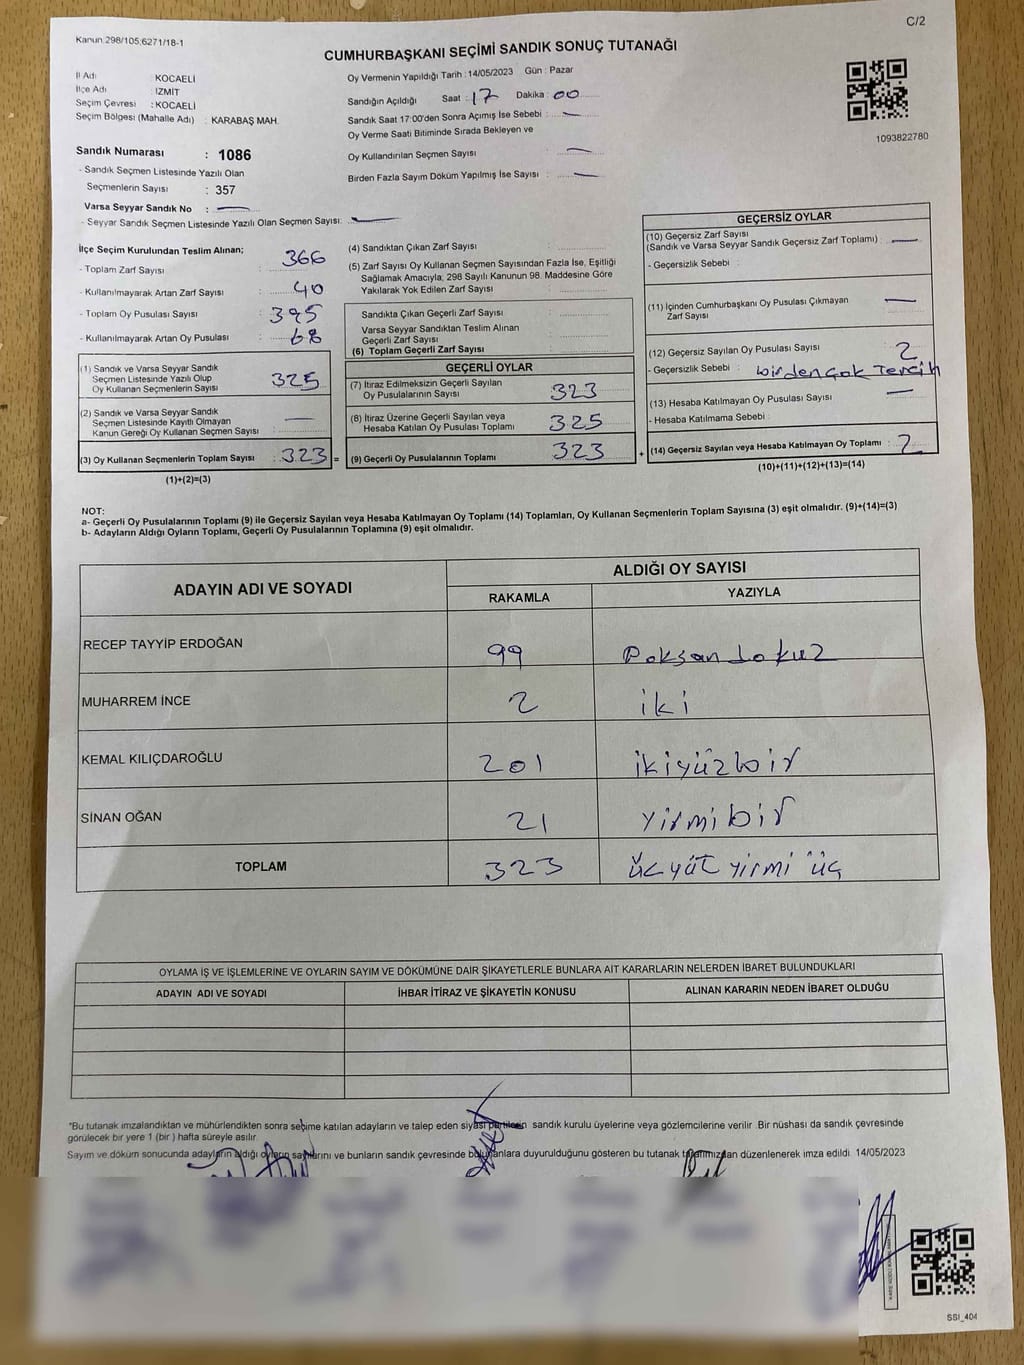 C/2
Kanun:298/105;6271/18-1
CUMHURBAŞKANI SEÇİMİ SANDIK SONUÇ TUTANAĞI
İl Adı : KOCAELİ
İlçe Adı : İZMİT
Seçim Çevresi : KOCAELİ
Seçim Bölgesi (Mahalle Adı) : KARABAŞ MAH.
Sandık Numarası : 1086
- Sandık Seçmen Listesinde Yazılı Olan
Seçmenlerin Sayısı : 357
Varsa Seyyar Sandık No : —
- Seyyar Sandık Seçmen Listesinde Yazılı Olan Seçmen Sayısı: —
Oy Vermenin Yapıldığı Tarih : 14/05/2023 Gün : Pazar
Sandığın Açıldığı Saat : 17 Dakika : 00
Sandık Saat 17:00'den Sonra Açımış İse Sebebi : —
Oy Verme Saati Bitiminde Sırada Bekleyen ve
Oy Kullandırılan Seçmen Sayısı : —
Birden Fazla Sayım Döküm Yapılmış İse Sayısı : —
1093822780
İlçe Seçim Kurulundan Teslim Alınan;
- Toplam Zarf Sayısı : 366
- Kullanılmayarak Artan Zarf Sayısı : 40
- Toplam Oy Pusulası Sayısı : 395
- Kullanılmayarak Artan Oy Pusulası : 68
(1) Sandık ve Varsa Seyyar Sandık
Seçmen Listesinde Yazılı Olup
Oy Kullanan Seçmenlerin Sayısı : 325
(2) Sandık ve Varsa Seyyar Sandık
Seçmen Listesinde Kayıtlı Olmayan
Kanun Gereği Oy Kullanan Seçmen Sayısı : —
(3) Oy Kullanan Seçmenlerin Toplam Sayısı : 323 =
(1)+(2)=(3)
(4) Sandıktan Çıkan Zarf Sayısı :
(5) Zarf Sayısı Oy Kullanan Seçmen Sayısından Fazla İse, Eşitliği
Sağlamak Amacıyla; 298 Sayılı Kanunun 98. Maddesine Göre
Yakılarak Yok Edilen Zarf Sayısı :
Sandıkta Çıkan Geçerli Zarf Sayısı :
Varsa Seyyar Sandıktan Teslim Alınan
Geçerli Zarf Sayısı :
(6) Toplam Geçerli Zarf Sayısı :
GEÇERLİ OYLAR
(7) İtiraz Edilmeksizin Geçerli Sayılan
Oy Pusulalarının Sayısı : 323
(8) İtiraz Üzerine Geçerli Sayılan veya
Hesaba Katılan Oy Pusulası Toplamı : 325
(9) Geçerli Oy Pusulalarının Toplamı : 323 +
GEÇERSİZ OYLAR
(10) Geçersiz Zarf Sayısı
(Sandık ve Varsa Seyyar Sandık Geçersiz Zarf Toplamı) : —
- Geçersizlik Sebebi :
(11) İçinden Cumhurbaşkanı Oy Pusulası Çıkmayan
Zarf Sayısı : —
(12) Geçersiz Sayılan Oy Pusulası Sayısı : 2
- Geçersizlik Sebebi : birden çok Tercih
(13) Hesaba Katılmayan Oy Pusulası Sayısı : —
- Hesaba Katılmama Sebebi :
(14) Geçersiz Sayılan veya Hesaba Katılmayan Oy Toplamı : 2
(10)+(11)+(12)+(13)=(14)
NOT:
a- Geçerli Oy Pusulalarının Toplamı (9) ile Geçersiz Sayılan veya Hesaba Katılmayan Oy Toplamı (14) Toplamları, Oy Kullanan Seçmenlerin Toplam Sayısına (3) eşit olmalıdır. (9)+(14)=(3)
b- Adayların Aldığı Oyların Toplamı, Geçerli Oy Pusulalarının Toplamına (9) eşit olmalıdır.
ADAYIN ADI VE SOYADI
ALDIĞI OY SAYISI
RAKAMLA YAZIYLA
RECEP TAYYİP ERDOĞAN 99 Doksan dokuz
MUHARREM İNCE 2 iki
KEMAL KILIÇDAROĞLU 201 ikiyüzbir
SİNAN OĞAN 21 yirmibir
TOPLAM 323 üçyüt yirmi üç
OYLAMA İŞ VE İŞLEMLERİNE VE OYLARIN SAYIM VE DÖKÜMÜNE DAİR ŞİKAYETLERLE BUNLARA AİT KARARLARIN NELERDEN İBARET BULUNDUKLARI
ADAYIN ADI VE SOYADI İHBAR İTİRAZ VE ŞİKAYETİN KONUSU ALINAN KARARIN NEDEN İBARET OLDUĞU
*Bu tutanak imzalandıktan ve mühürlendikten sonra seçime katılan adayların ve talep eden siyasi partilerin sandık kurulu üyelerine veya gözlemcilerine verilir. Bir nüshası da sandık çevresinde
görülecek bir yere 1 (bir) hafta süreyle asılır.
Sayım ve döküm sonucunda adayların aldığı oyların sayılarını ve bunların sandık çevresinde bulunanlara duyurulduğunu gösteren bu tutanak tarafımızdan düzenlenerek imza edildi. 14/05/2023
SSI_404